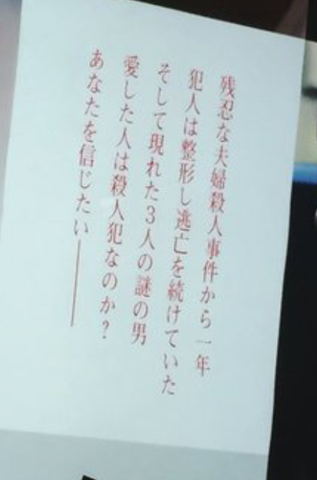 残忍な夫婦殺人事件から一年
犯人は整形し逃亡を続けていた
そして現れた3人の謎の男
愛した人は殺人犯なのか？
あなたを信じたい───